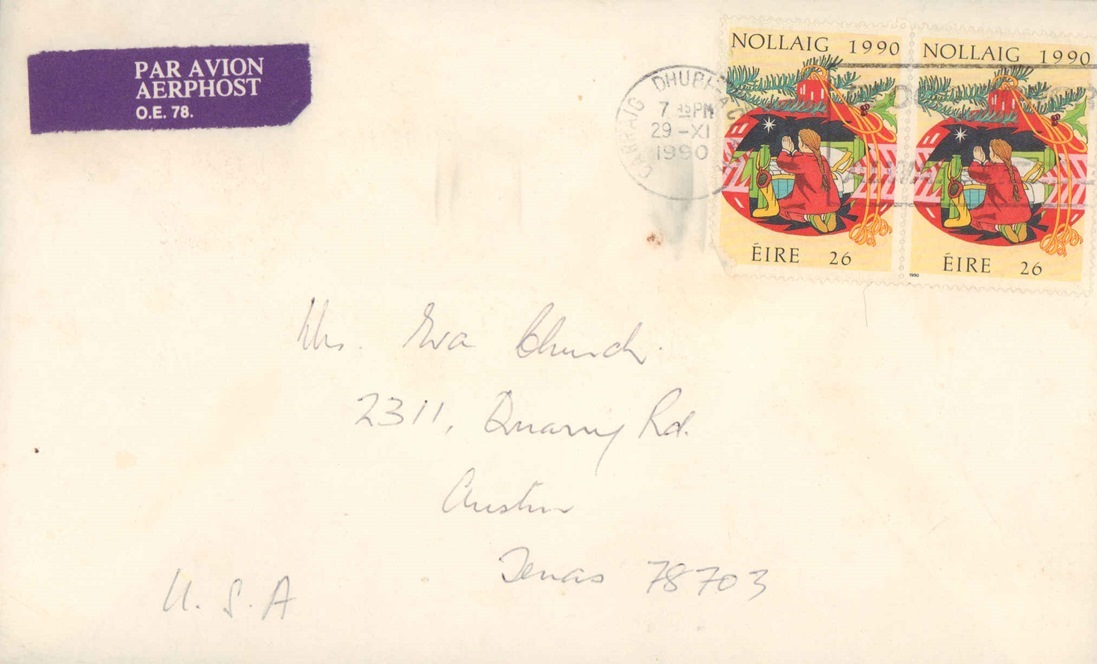 PAR AVION
AERPHOST
O.E. 78.
NOLLAIG 1990
NOLLAIG 1990
CARRAIG DHUBH
7 PM
29-XI
1990
ÉIRE 26
ÉIRE 26
1990
Mrs. Eva Church.
2311, Quarry Rd.
Austin
Texas 78703
U.S.A